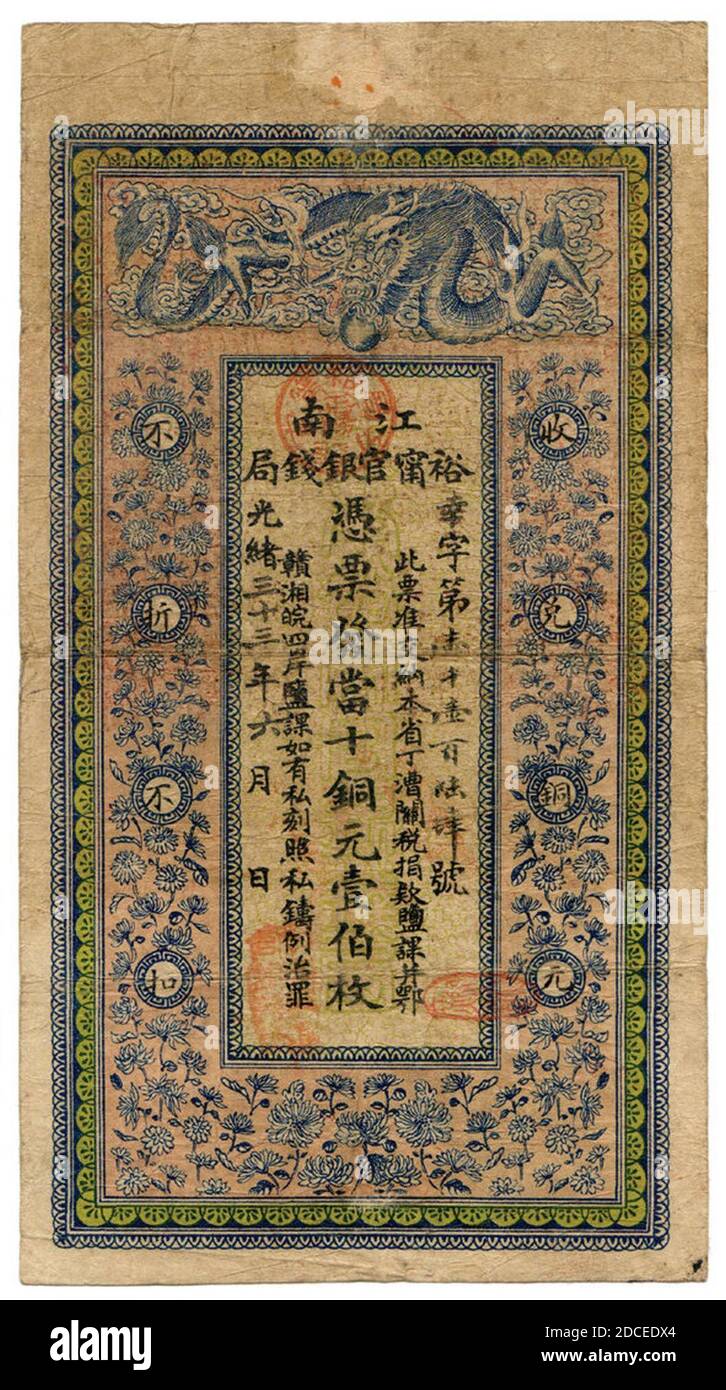 江南
裕甯官銀錢局
字第
千壹百陸肆號
此票准完納本省丁漕關稅捐款鹽課并鄂
憑票發當十銅元壹伯枚
贛湘皖四岸鹽課如有私刻照私鑄例治罪
光緒三十三年六月 日
收兌銅元
不折不扣
alamy
Image ID: 2DCEDX4
www.alamy.com